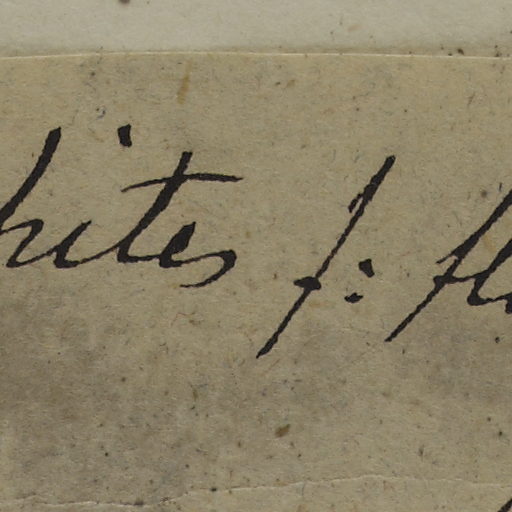 hites f: fl